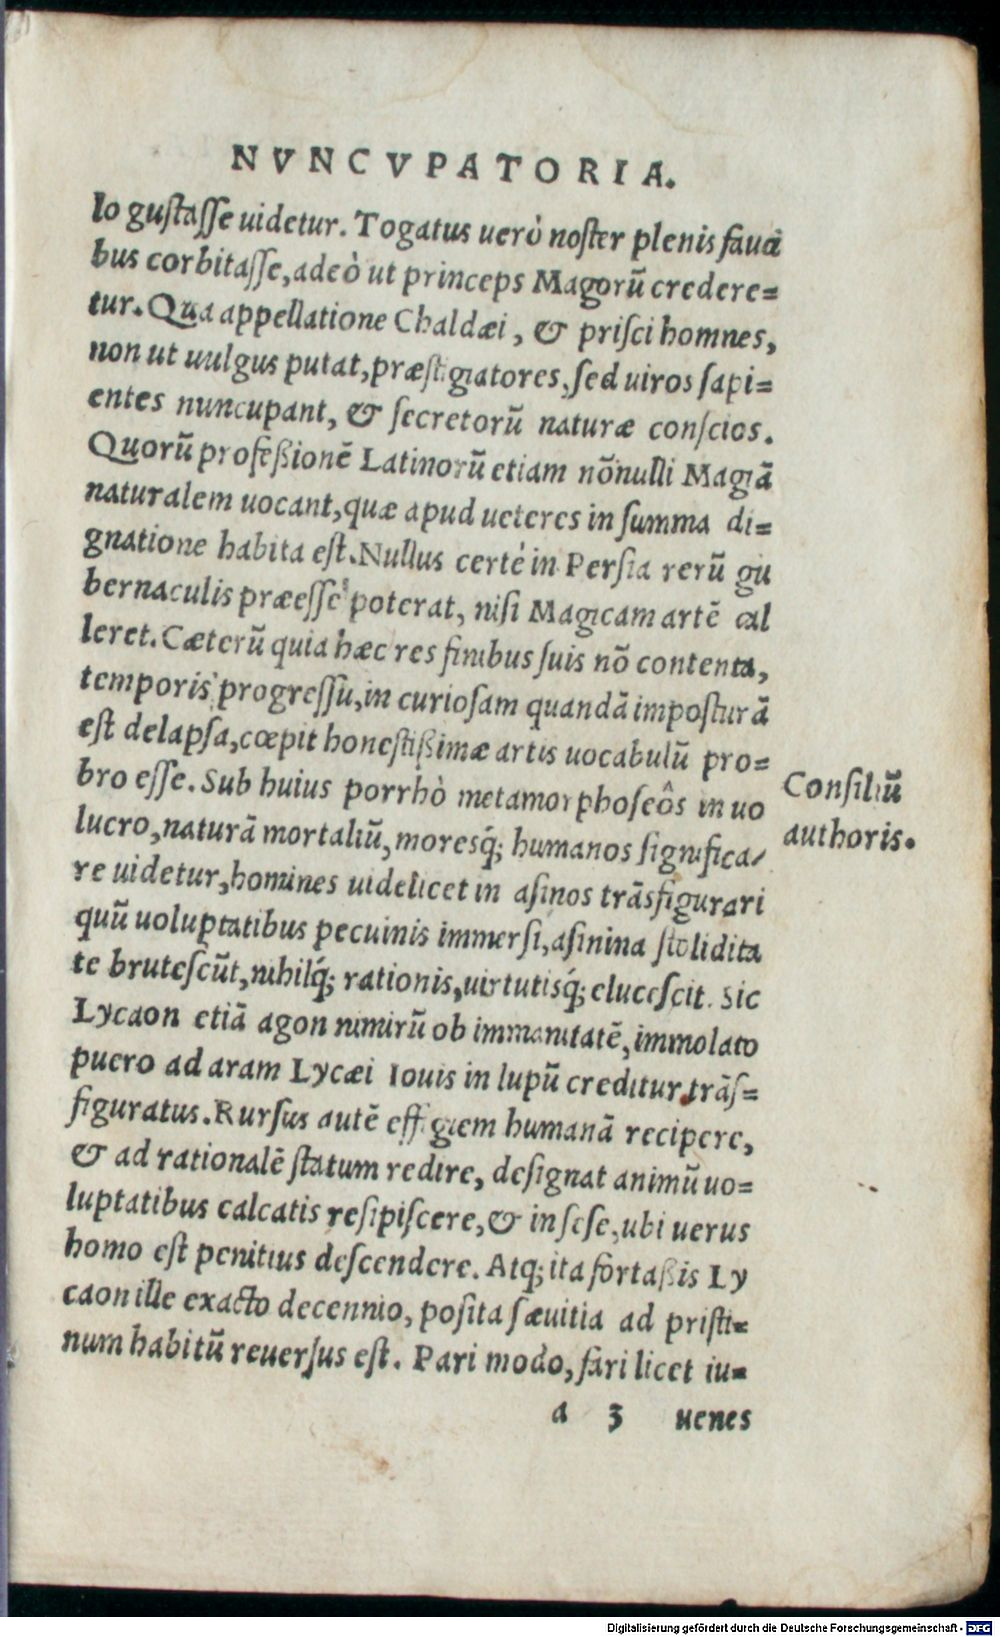 NVNCVPATORIA.
lo gustasse uidetur. Togatus uerò noster plenis fauci
bus corbitasse, adeò ut princeps Magorũ credere=
tur. Qua appellatione Chaldæi, & prisci homnes,
non ut uulgus putat, præstigiatores, sed uiros sapi=
entes nuncupant, & secretorũ naturæ conscios.
Quorũ profeßionẽ Latinorũ etiam nõnulli Magiã
naturalem uocant, quæ apud ueteres in summa di=
gnatione habita est. Nullus certè in Persia rerũ gu
bernaculis præesse poterat, nisi Magicam artẽ cal
leret. Cæterũ quia hæc res finibus suis nõ contenta,
temporis progressu, in curiosam quandã imposturã
est delapsa, cœpit honestißimæ artis uocabulũ pro=
bro esse. Sub huius porrhò metamorphoseôs in uo
lucro, naturã mortaliũ, moresq́; humanos significa/
re uidetur, homines uidelicet in asinos trãsfigurari
quũ uoluptatibus pecuinis immersi, asinina stolidita
te brutescũt, nihilq́; rationis, uirtutisq́; elucescit. Sic
Lycaon etiã agon nimirũ ob immanitatẽ, immolato
puero ad aram Lycæi Iouis in lupũ creditur trãs=
figuratus. Rursus autẽ effigiem humanã recipere,
& ad rationalẽ statum redire, designat animũ uo=
luptatibus calcatis resipiscere, & in sese, ubi uerus
homo est penitius descendere. Atq; ita fortaßis Ly
caon ille exacto decennio, posita sæuitia ad pristi=
num habitũ reuersus est. Pari modo, fari licet iu=
a 3 uenes
Consiliũ
authoris.
Digitalisierung gefördert durch die Deutsche Forschungsgemeinschaft - DFG